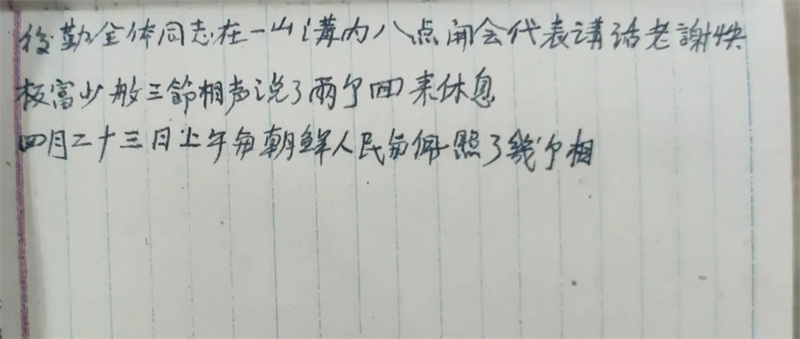 後勤全体同志在一山溝内八点開会代表講話老謝快
板富少敏三節相声说了兩个回来休息
四月二十三日上午每朝鮮人民每俩照了幾个相